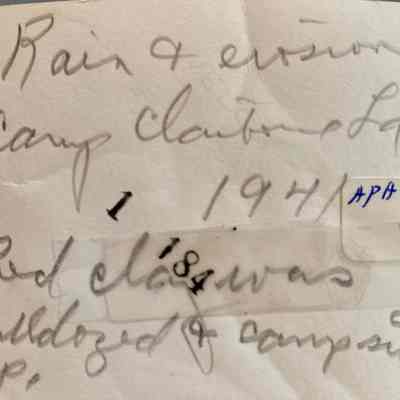 Rain & erosion
Camp Claiborne La
1 1941 APH
184
Red clay was
ulldozed & campsi
P.